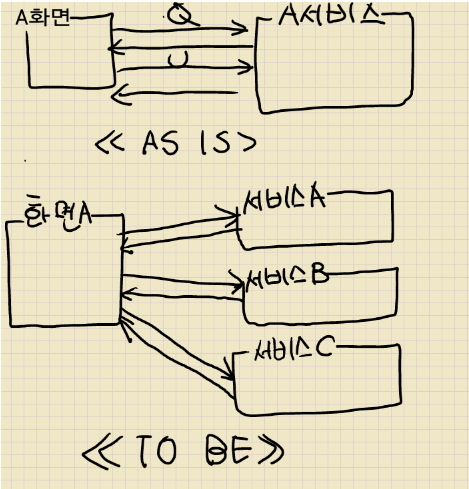 A화면
Q
A서비스
U
<< AS IS >
화면A
서비스A
서비스B
서비스C
<< TO BE >>